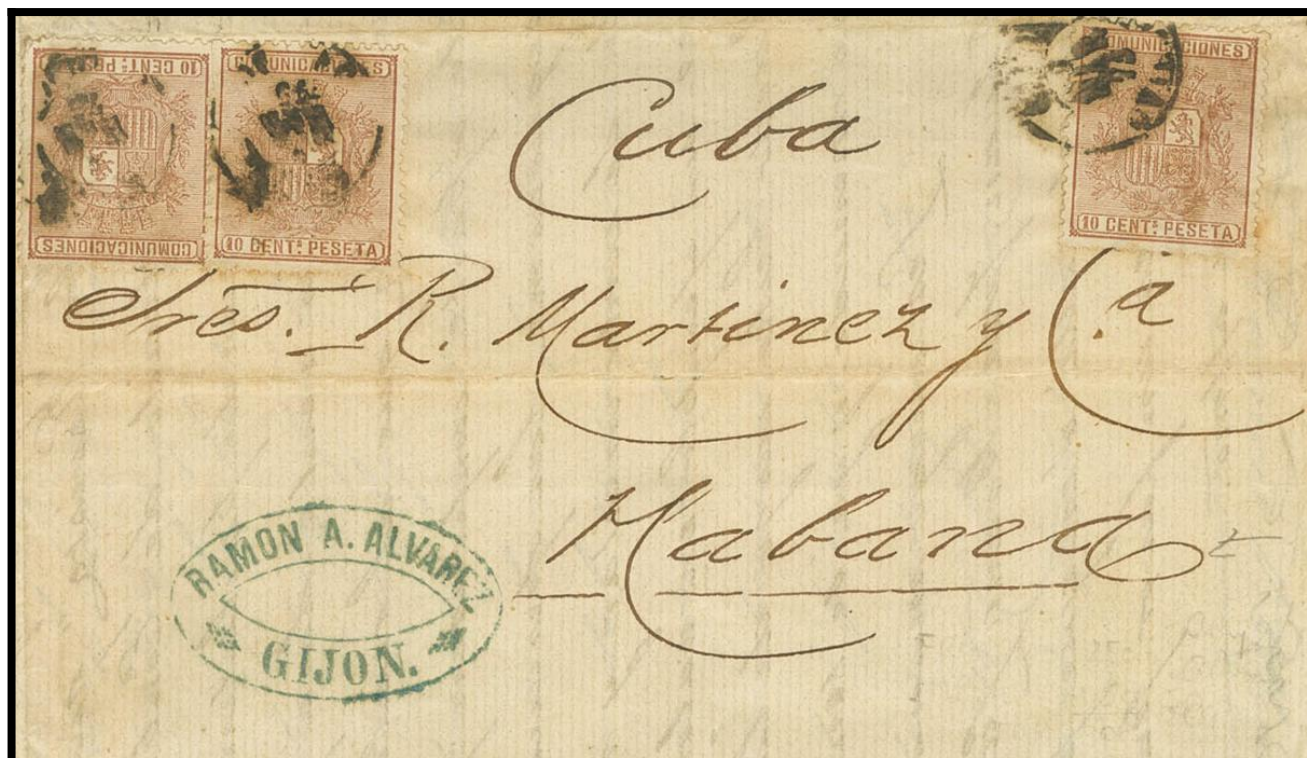 COMUNICACIONES
10 CENT.ˢ PESETA
COMUNICACIONES
10 CENT.ˢ PESETA
COMUNICACIONES
10 CENT.ˢ PESETA
Cuba
Sres. R. Martinez y C.ª
Habana
RAMON A. ALVAREZ
GIJON.